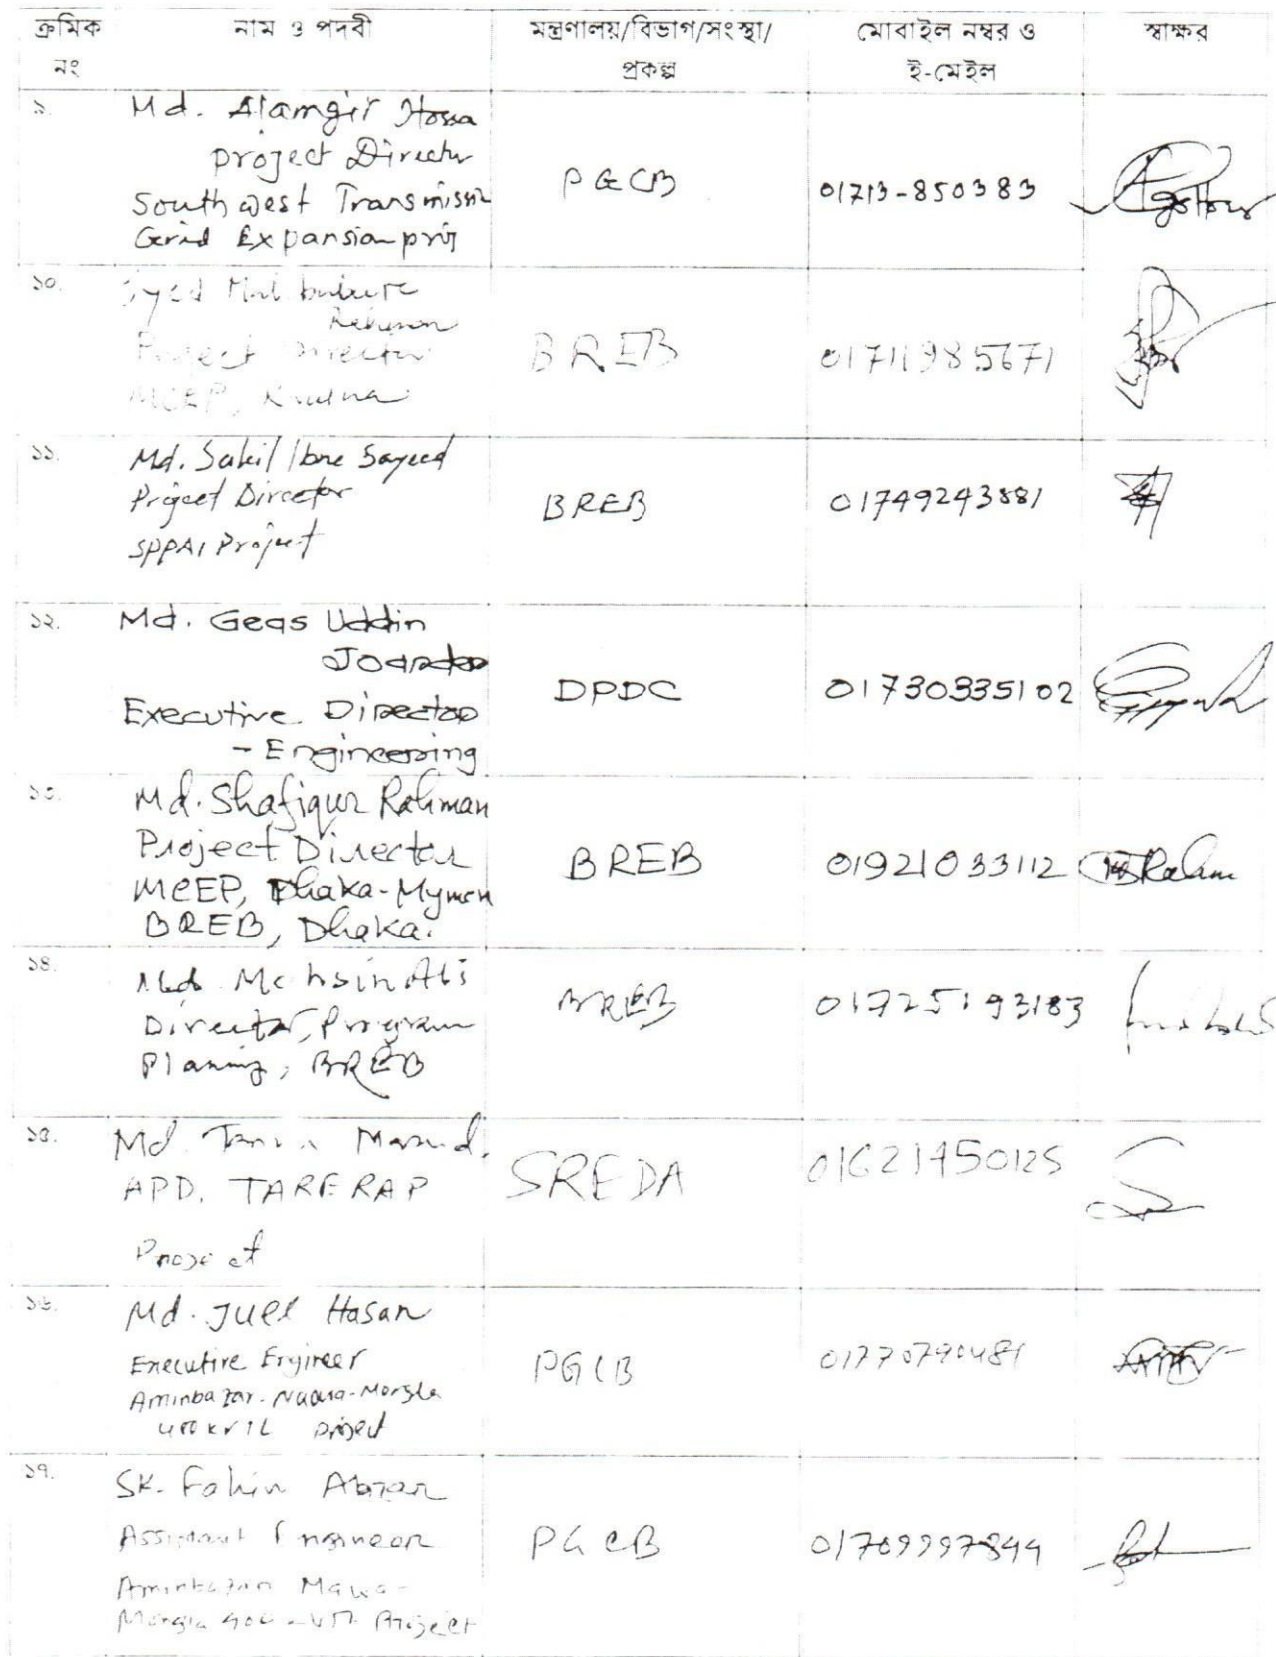 ক্রমিক নং
নাম ও পদবী
মন্ত্রণালয়/বিভাগ/সংস্থা/
প্রকল্প
মোবাইল নম্বর ও
ই-মেইল
স্বাক্ষর
৯.
Md. Alamgir Hossa
project Director
Southwest Transmissn
Grid Expansion proj
PGCB
01713-850383
১০.
Syed Mahbubure
Rahman
Project Director
MCEP, Khulna
BREB
01711985671
১১.
Md. Sakil Ibne Sayeed
Project Director
SPPAI Project
BREB
01749243881
১২.
Md. Geas Uddin
Joarder
Executive Director
- Engineering
DPDC
01730335102
১৩.
Md. Shafiqur Rahman
Project Director
MCEP, Dhaka-Mymen
BREB, Dhaka.
BREB
01921033112
১৪.
Md. Mohsin Ali
Director, Program
Planning, BREB
BREB
01725193183
১৫.
Md. Masud.
APD. TARERAP
Project
SREDA
১৬.
Md. Juel Hasan
Executive Engineer
Aminbazar-Mawa-Mongla
400 kv TL project
PGCB
01770790481
১৭.
SK. Fahin Abrar
Assistant Engineer
Aminbazar Mawa-
Mongla 400 Project
PGCB
01709997844